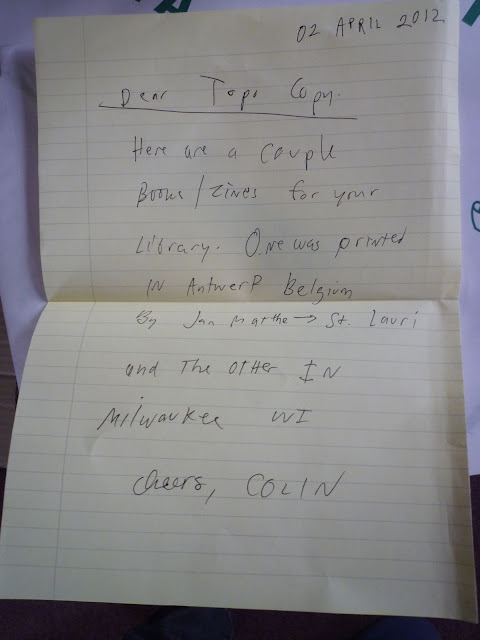 02 APRIL 2012
Dear Topo Copy.
Here are a couple
Books/Zines for your
Library. One was printed
IN Antwerp Belgium
By Jan Matthe → St. Lauri
and The other IN
Milwaukee WI
cheers, COLIN